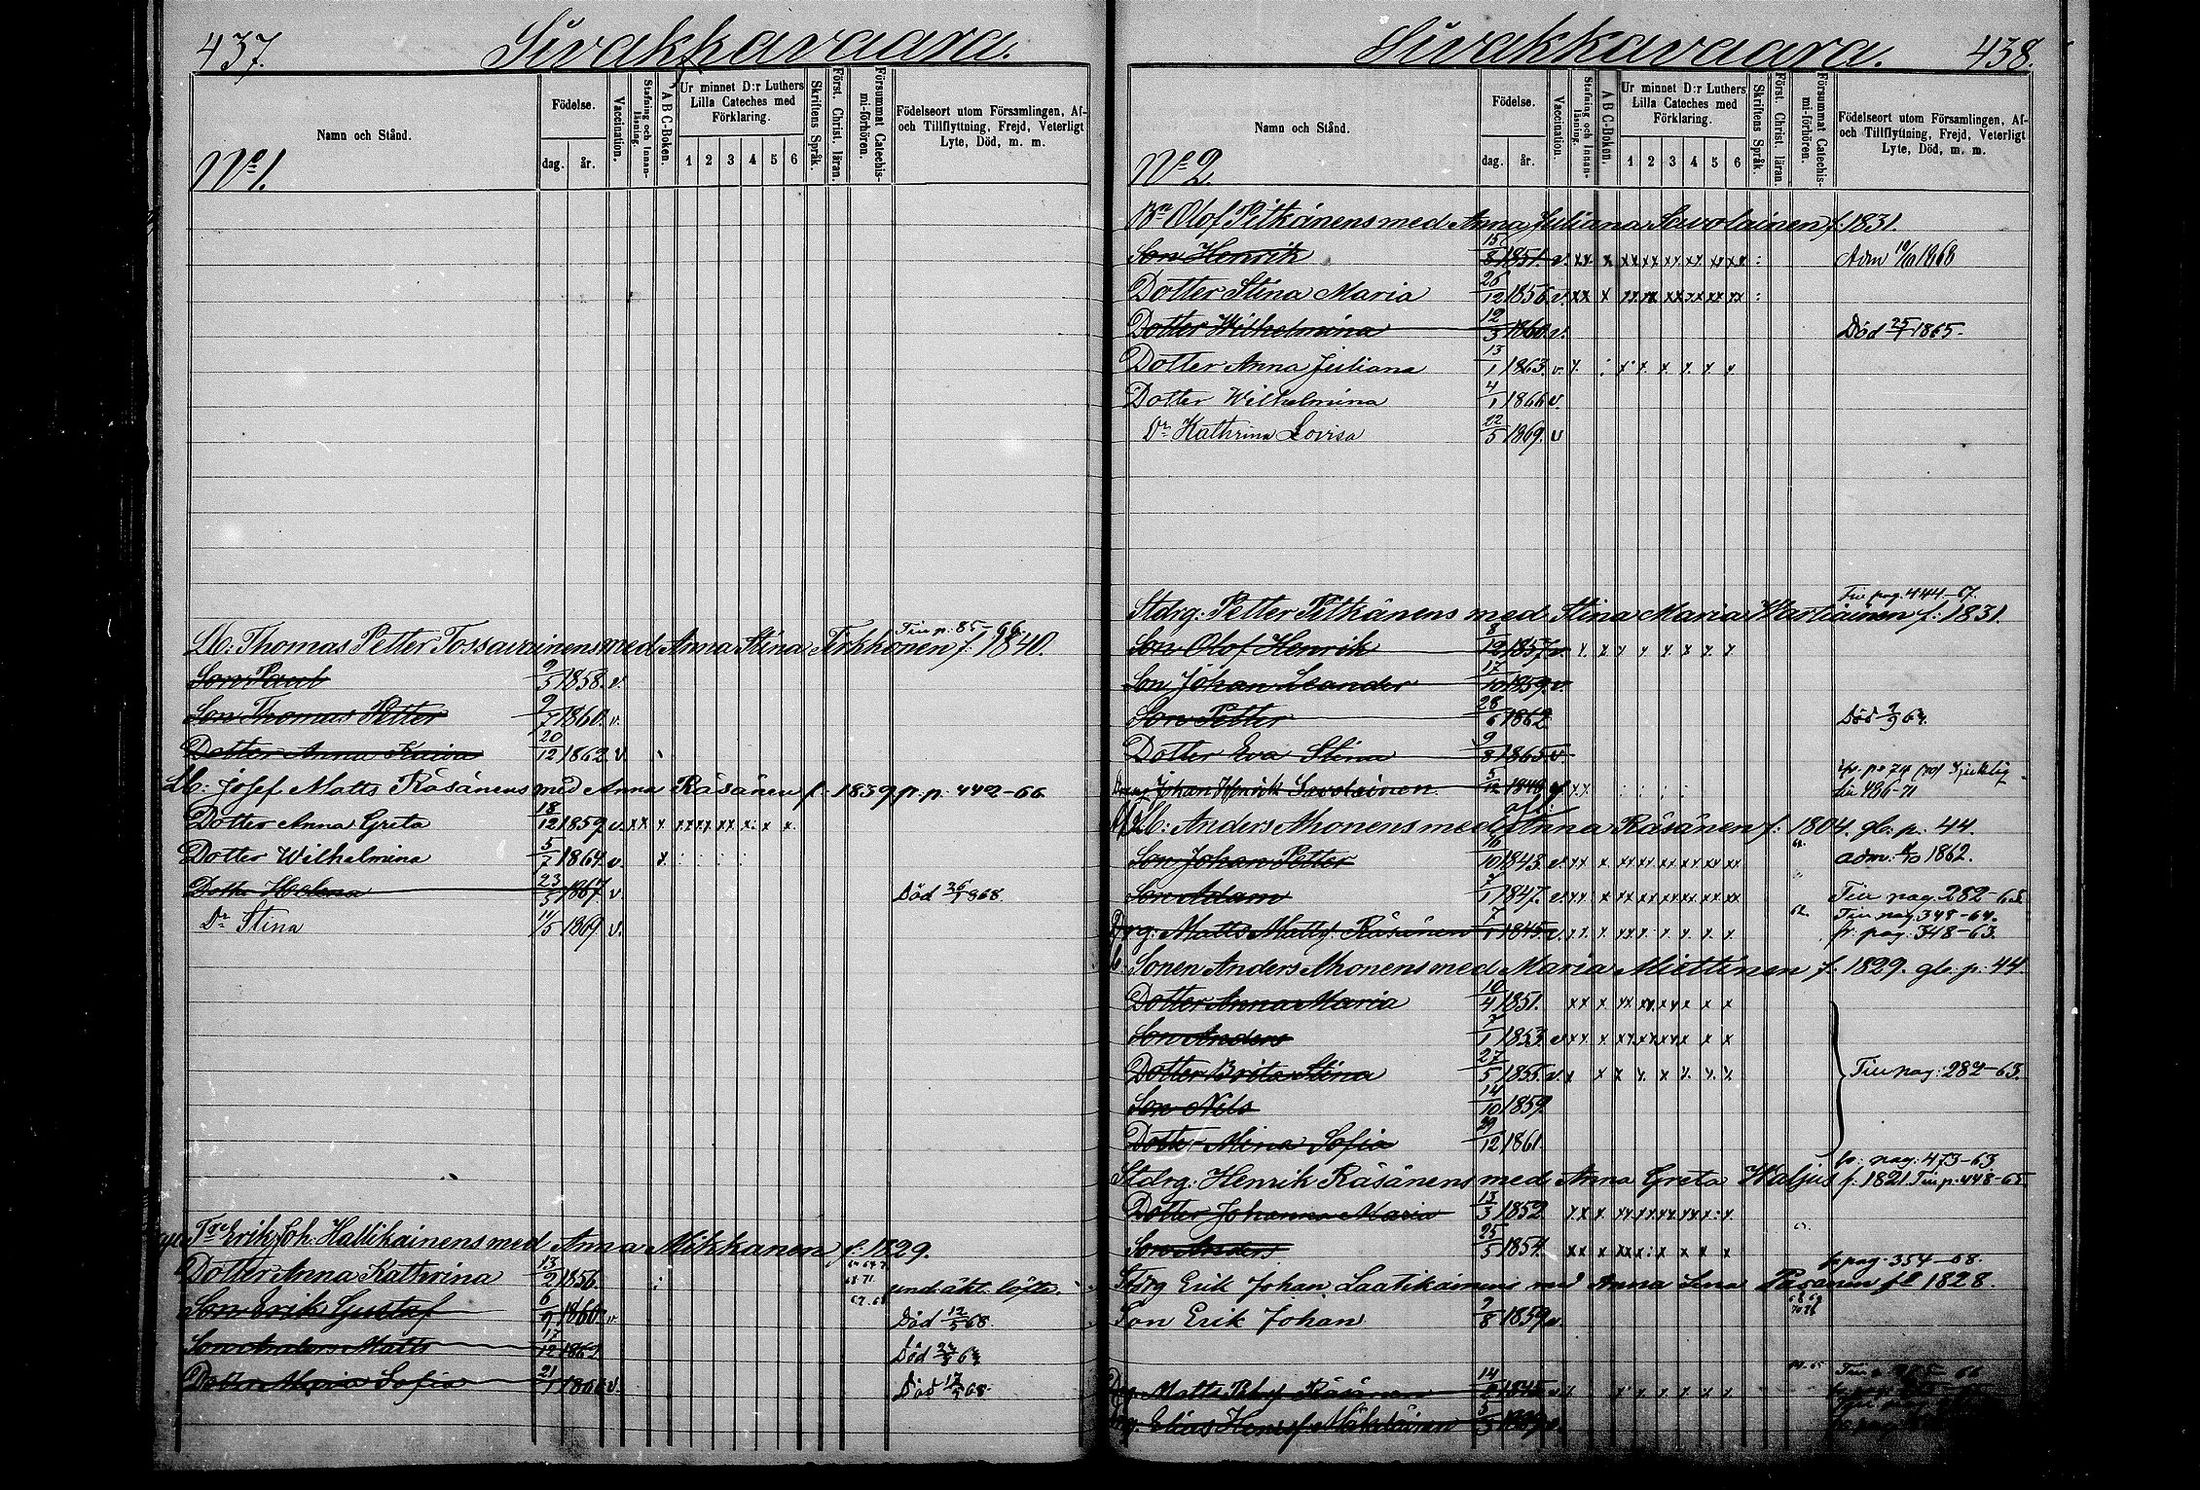 437. Sivakkavaara.
Namn och Stånd.
Födelse.
dag. år.
Vaccination.
Stafning och Innanläsning.
A B C-Boken.
Ur minnet D:r Luthers Lilla Cateches med Förklaring.
1 2 3 4 5 6
Skriftens Språk.
Först. Christ. läran.
Försummat Catechismi-förhören.
Födelseort utom Församlingen, Af- och Tillflyttning, Frejd, Veterligt Lyte, Död, m. m.
No 1.
Lb: Thomas Petter Tossavainens med Anna Stina Tirkkonen f. 1840. Till p. 85-66
Son Paul 9/5 1858. v.
Son Thomas Petter 9/7 1860. v.
Dotter Anna Kaisa 20/12 1862. v.
Lb: Josef Matts Räsänens med Anna Räsänen f. 1839 fr. p. 442-66
Dotter Anna Greta 18/12 1859. v. xx x xx xx xx x: x x.
Dotter Wilhelmina 5/7 1864. v. x
Dotter Helena 23/5 1867 v. Död 26/1 1868.
Dr Stina 14/5 1869 v.
Erik Joh: Hallikainens med Anna Mikkanen f. 1829.
Dotter Anna Kathrina 13/2 1856. oäkt. löfte.
Son Erik Gustaf 6/9 1860. v. Död 12/5 68.
Son Anders Matts 17/12 1862 Död
Dotter Maria Sofia 21/1 1866 v. Död 17/5 68.
Sivakkavaara. 438.
Namn och Stånd.
Födelse.
dag. år.
Vaccination.
Stafning och Innanläsning.
A B C-Boken.
Ur minnet D:r Luthers Lilla Cateches med Förklaring.
1 2 3 4 5 6
Skriftens Språk.
Först. Christ. läran.
Försummat Catechismi-förhören.
Födelseort utom Församlingen, Af- och Tillflyttning, Frejd, Veterligt Lyte, Död, m. m.
No 2.
Bn Olof Pitkänens med Anna Juliana Savolainen f. 1831.
Son Henrik 15/8 1851. v. xx x xx xx xx xx xx xx : Adm 10/10 1868
Dotter Stina Maria 26/12 1856. v. xx x xx xx xx xx xx xx :
Dotter Wilhelmina 12/3 1860. v. Död 25/1 1865.
Dotter Anna Juliana 13/1 1863. v. x. : x x. x x. x. x
Dotter Wilhelmina 4/1 1866 v.
Dr Kathrina Lovisa 22/5 1869. v
Stdrg: Petter Pitkänens med Stina Maria Kartiainen f. 1831. Till pag. 444-67.
Son Olof Henrik 8/12 1857. v. x x x x x x x x
Son Johan Leander 17/10 1859. v.
Son Petter 28/6 1862 Död
Dotter Eva Stina 9/8 1865 v
Johan Henrik Savolainen 5/12 1849 xx Sjuklig
till 436-71
Lb: Anders Ahonens med Anna Räsänen f. 1804. gl. p. 44.
Son Johan Petter 16/10 1843. v. xx x xx xx xx xx xx xx adm: 1862.
Son Adam 1847. v. xx x xx xx xx xx xx xx Till pag. 282-63.
Till pag. 348-64.
Drg: Matts Matts. Räsänen 7/1 1845. v. xx x. xx x. x. x. x. x. fr. pag. 348-63.
Sonen Anders Ahonens med Maria Miettinen f. 1829. gl. p. 44
Dotter Anna Maria 10/4 1851. xx x xx xx xx x x x
Son Anders 7/1 1853. v. xx x xx xx xx x x x
Dotter Brita Stina 27/5 1855. v. x x x x. x x. x. x. Till pag: 282-63.
Son Nils 14/10 1859.
Dotter Mina Sofia 29/12 1861.
fr: pag: 473-63
Stdrg: Henrik Räsänens med Anna Greta Waljus f. 1821. Till p. 448-65
Dotter Johanna Maria 13/3 1852
Son Anders 25/5 1854. xx x xx x: x x x x
fr pag. 354-68.
Stdrg Erik Johan Laatikainens med Anna Lena Pasanen fd 1828.
Son Erik Johan 9/8 1859 v.
Drg Matts Räsänen 14 1845
Drg. Elias Henrsf. 5